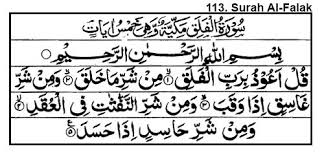 113. Surah Al-Falak
سُوْرَةُ الْفَلَقِ مَكِّيَّةٌ وَّهِىَ خَمْسُ اٰيَاتٍ
بِسْمِ اللّٰهِ الرَّحْمٰنِ الرَّحِيْمِ
قُلْ اَعُوْذُ بِرَبِّ الْفَلَقِ ۙ۱ مِنْ شَرِّ مَا خَلَقَ ۙ۲ وَمِنْ شَرِّ
غَاسِقٍ اِذَا وَقَبَ ۙ۳ وَمِنْ شَرِّ النَّفّٰثٰتِ فِى الْعُقَدِ ۙ۴
وَمِنْ شَرِّ حَاسِدٍ اِذَا حَسَدَ ۵